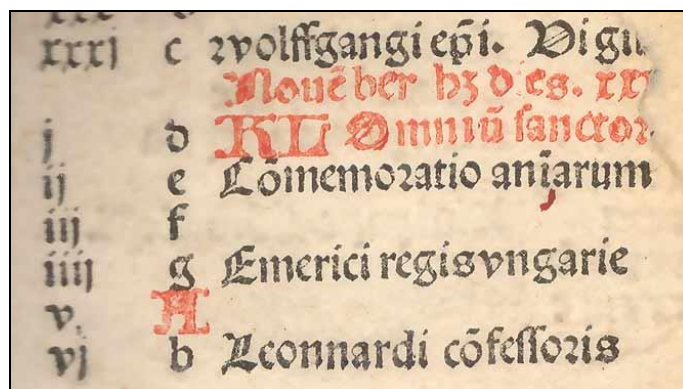 xxxj c wolffgangi ep̄i. Vigil
Nouēber hȝ dies. xx
j d KL Omniū sanctor
ij e Cōmemoratio anīarum
iij f
iiij g Emerici regis vngarie
v. A
vj b Leonnardi cōfessoris